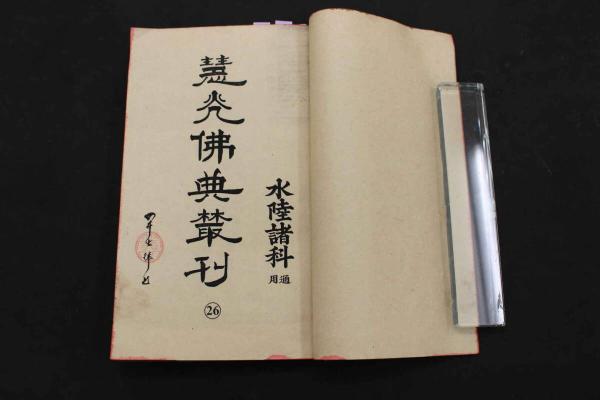 水陸諸科
通用
慧光佛典叢刊
26